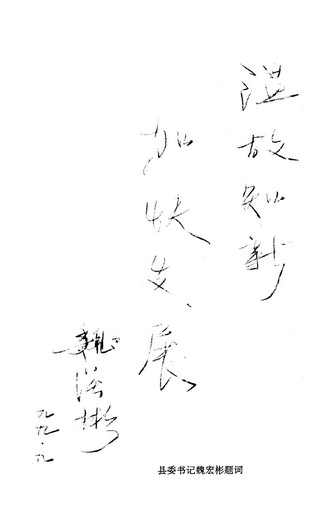 温故知新
加快发展
魏宏彬
九九.九
县委书记魏宏彬题词